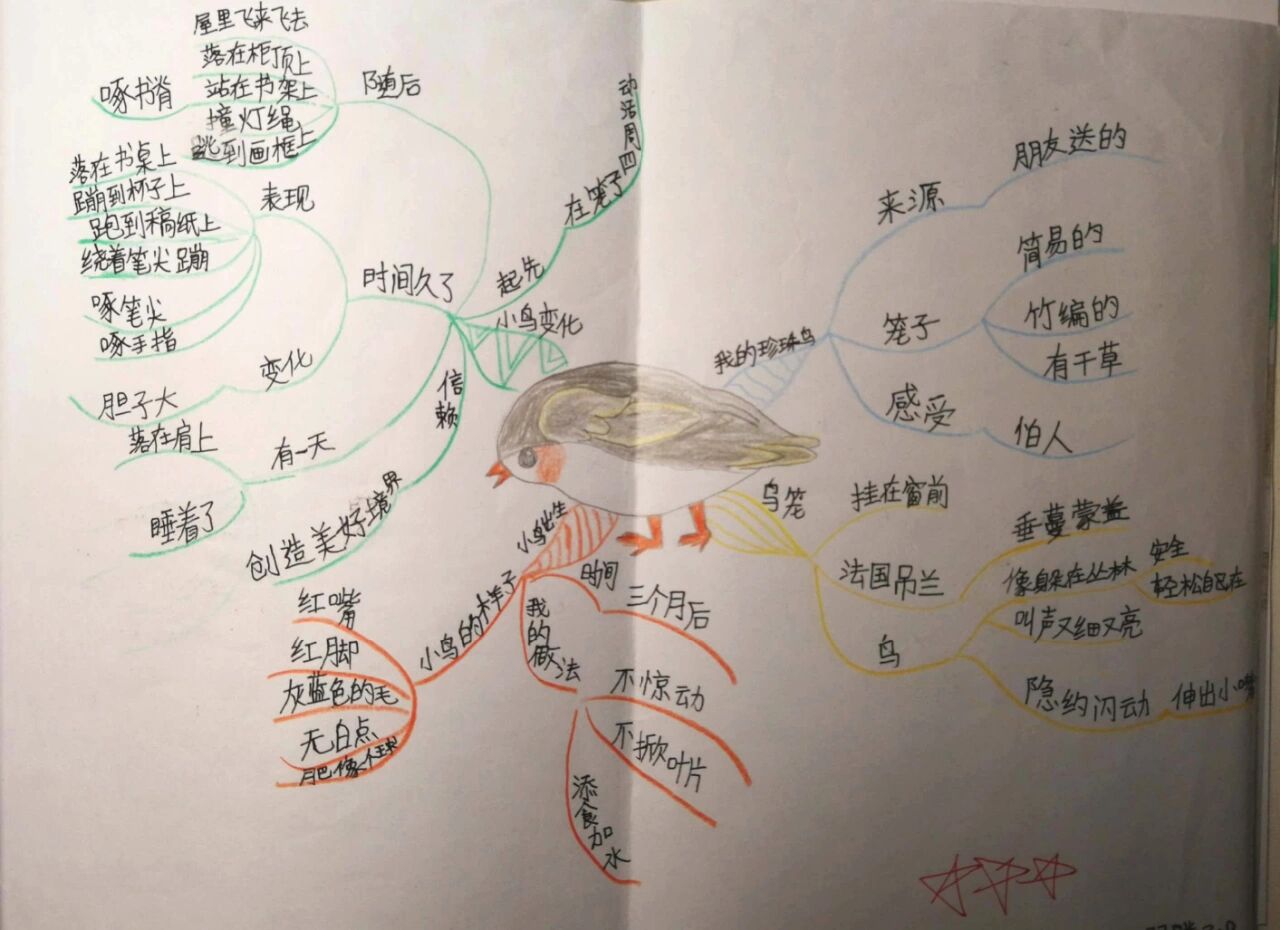 我的珍珠鸟
来源
朋友送的
笼子
简易的
竹编的
有干草
感受
怕人
鸟笼
挂在窗前
法国吊兰
垂蔓蒙盖
鸟
像躲在丛林
安全
轻松自己在
叫声又细又亮
隐约闪动
伸出小嘴
小鸟出生
时间
三个月后
我的做法
不惊动
不掀叶片
添食加水
小鸟的样子
红嘴
红脚
灰蓝色的毛
无白点
肥像个球
小鸟变化
起先
在笼子四周活动
随后
屋里飞来飞去
落在柜顶上
站在书架上
啄书脊
撞灯绳
跳到画框上
时间久了
表现
落在书桌上
蹦到杯子上
跑到稿纸上
绕着笔尖蹦
啄笔尖
啄手指
变化
胆子大
有一天
落在肩上
睡着了
信赖
创造美好境界